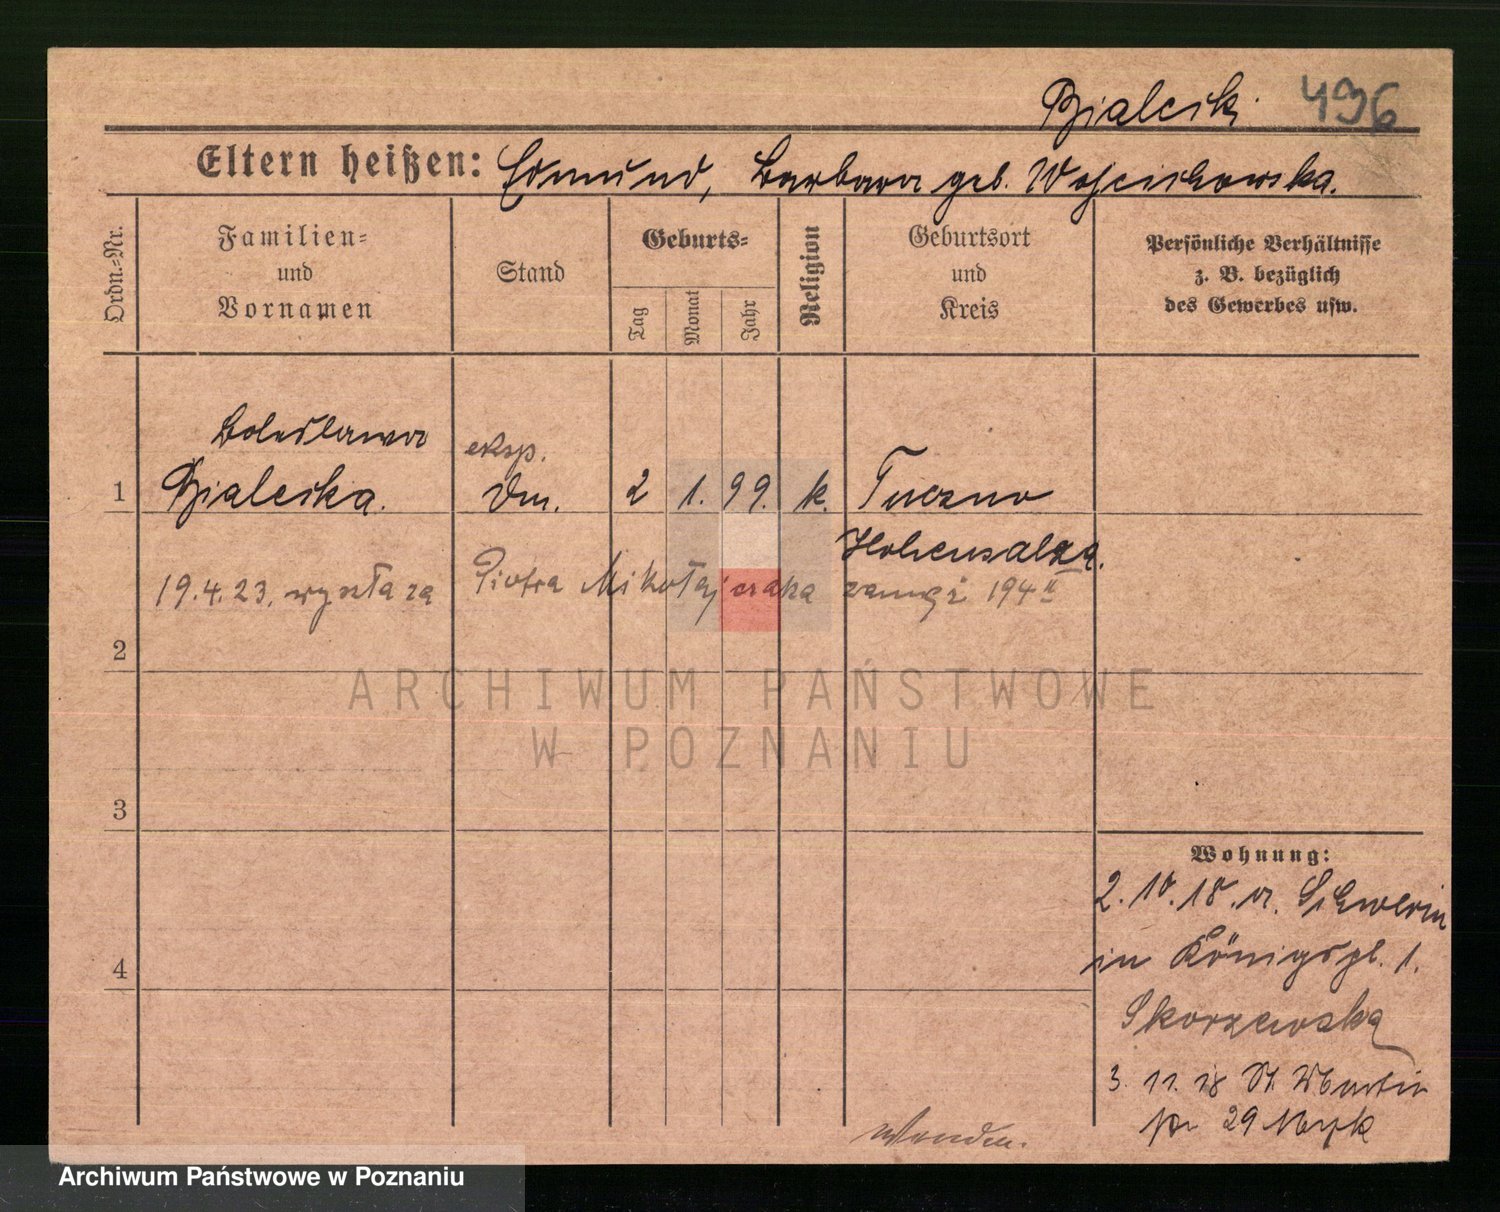 Bialcik. 496
Eltern heißen: Edmund, Barbara geb. Wojciechowska.
Ordn.-Nr.
Familien-
und
Vornamen
Stand
Geburts-
Tag
Monat
Jahr
Religion
Geburtsort
und
Kreis
Persönliche Verhältnisse
z. B. bezüglich
des Gewerbes usw.
Boleslawa eksp.
1 Bialcika. Dm. 2 1. 99. k. Tuczno
Hohensalza.
19.4.23. wyszła za Piotra Mikołajczaka zamąż 194 II
2
3
4
ARCHIWUM PAŃSTWOWE
W POZNANIU
Wohnung:
2. 10. 18. v. Schwerin
in Königspl. 1.
Skorzewska
3. 11. 18 St. Martin
29
Wenden.
Archiwum Państwowe w Poznaniu